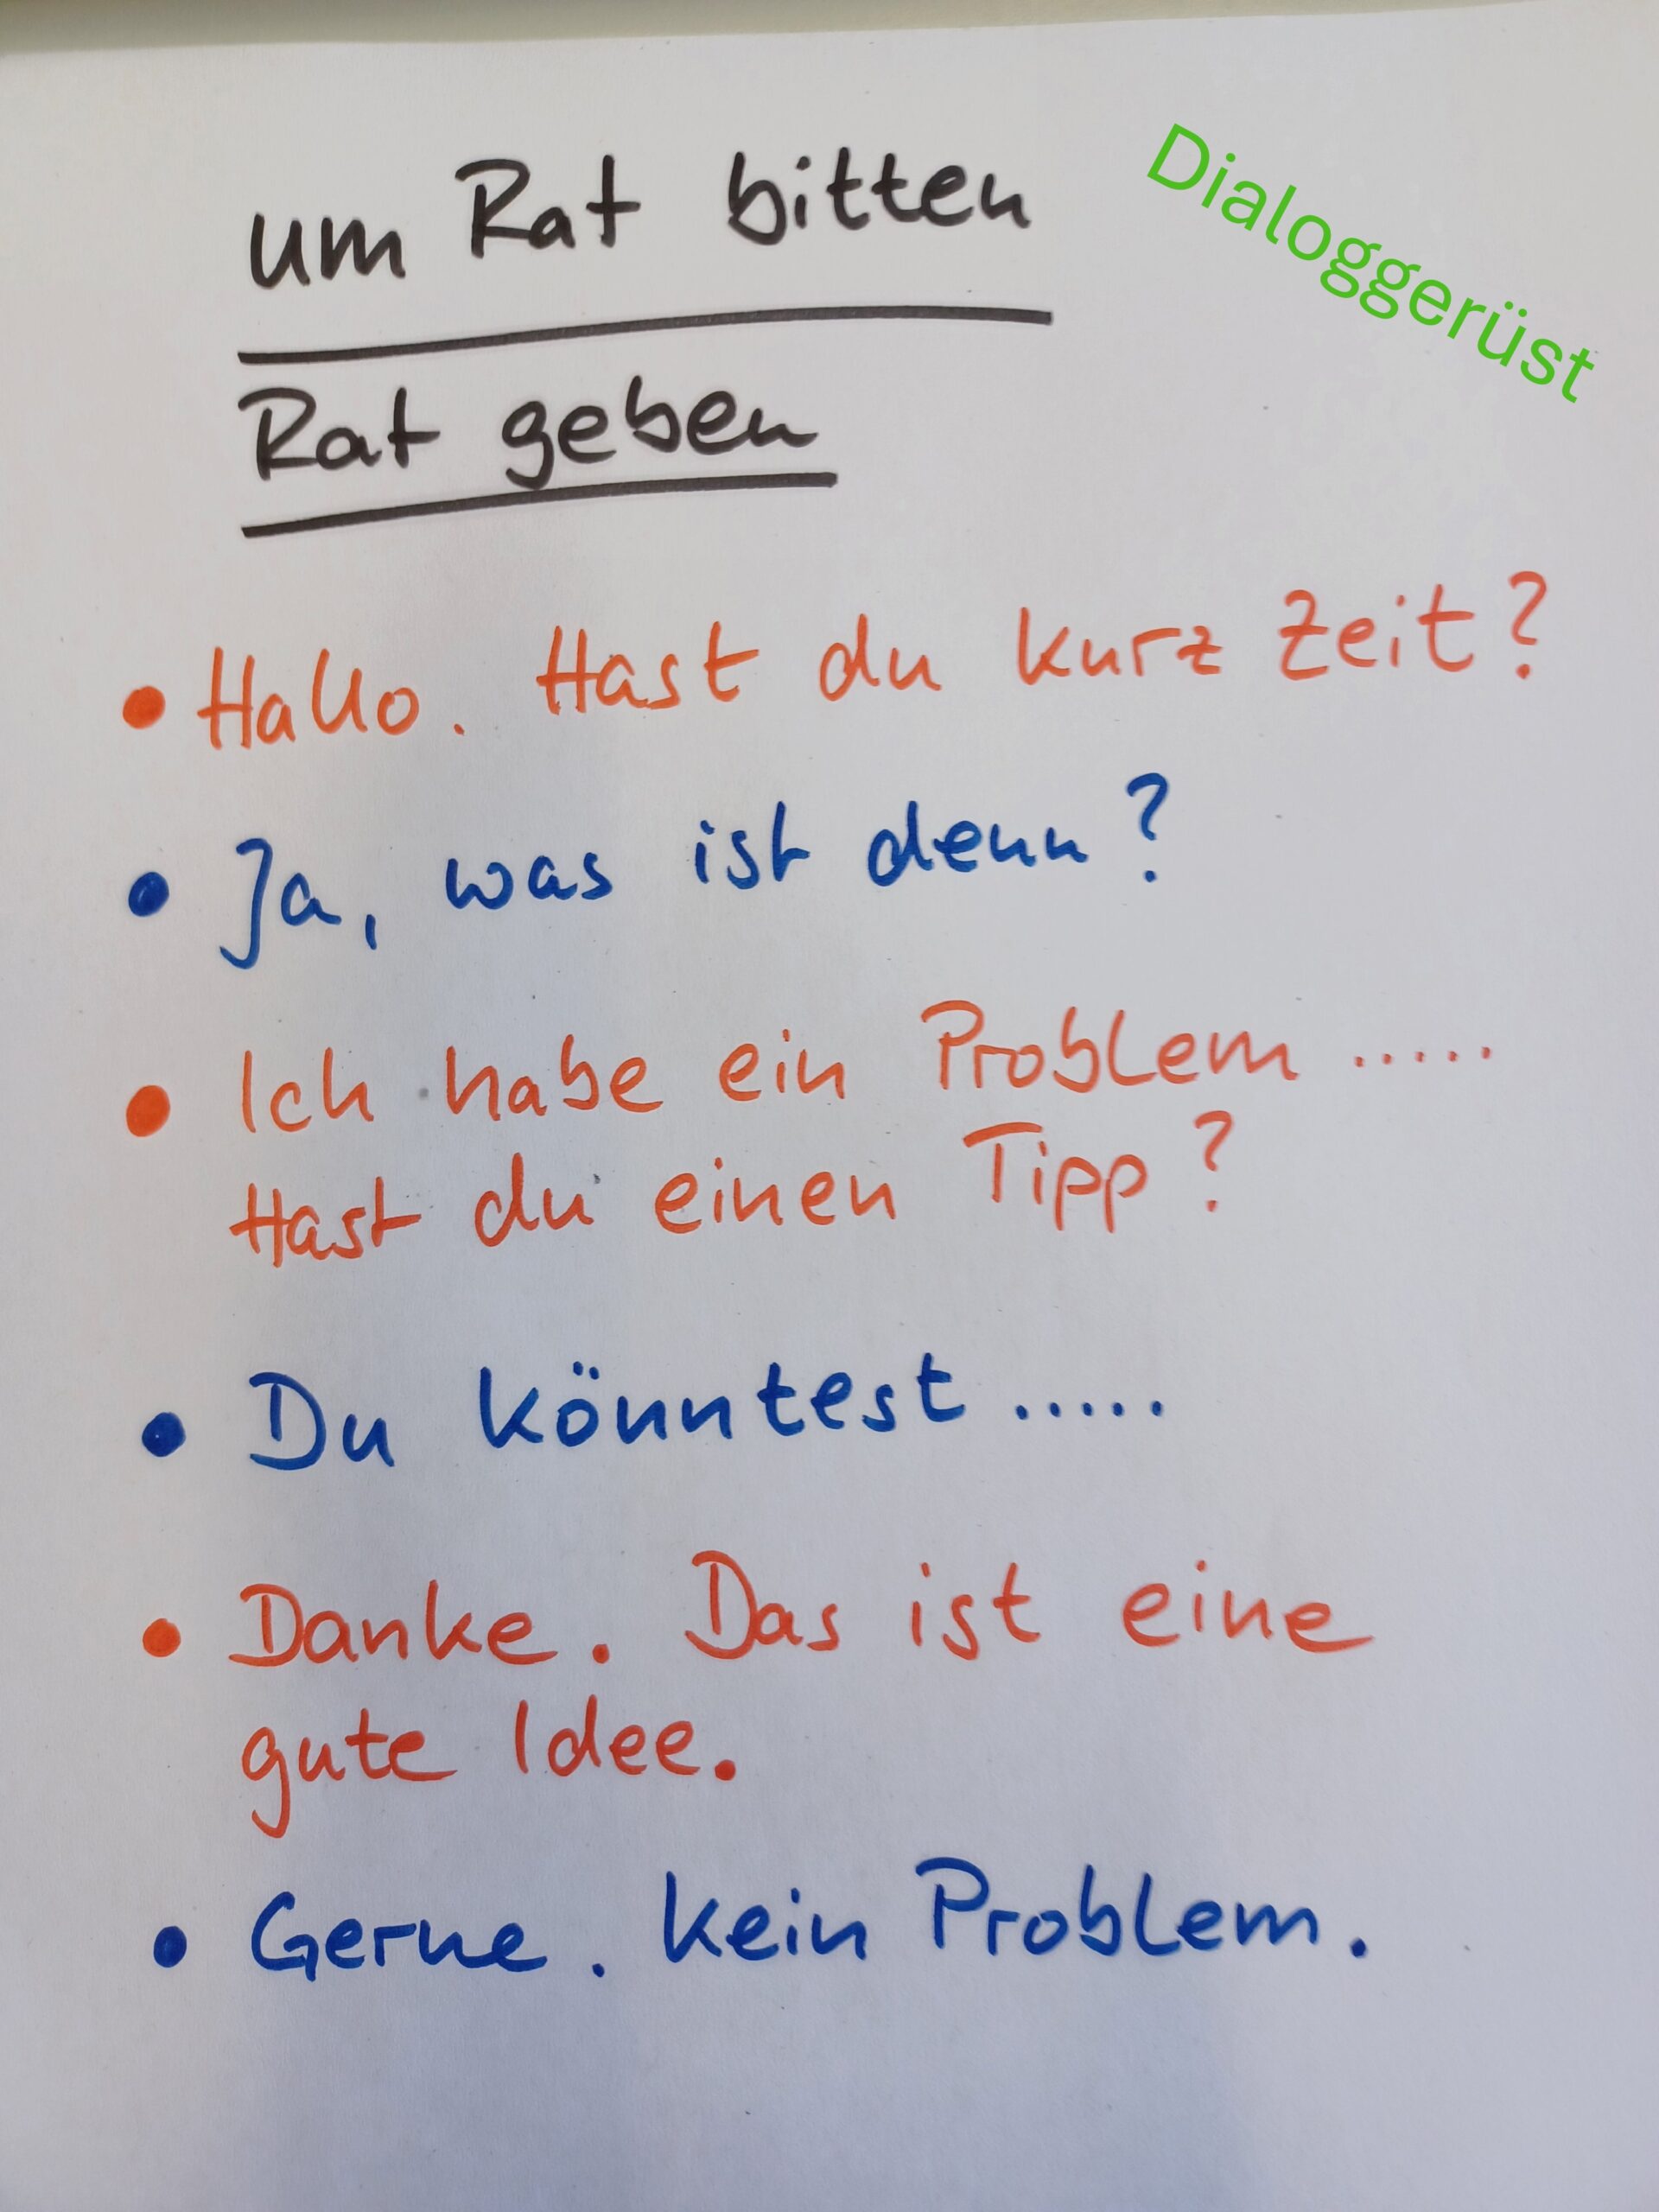 Dialoggerüst
um Rat bitten
Rat geben
• Hallo. Hast du kurz Zeit?
• Ja, was ist denn?
• Ich habe ein Problem .....
Hast du einen Tipp?
• Du könntest .....
• Danke. Das ist eine
gute Idee.
• Gerne. Kein Problem.